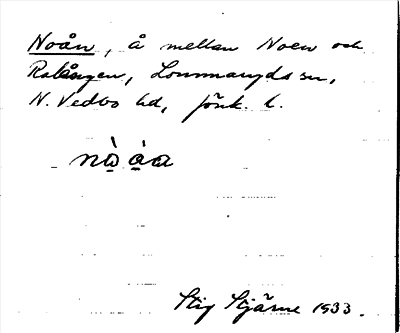 Noån, å mellan Noen och
Ralången, Lommaryds sn,
N. Vedbo hd, Jönk. l.
nɷ̀ ɷ́a
Stig Stjärne 1933.